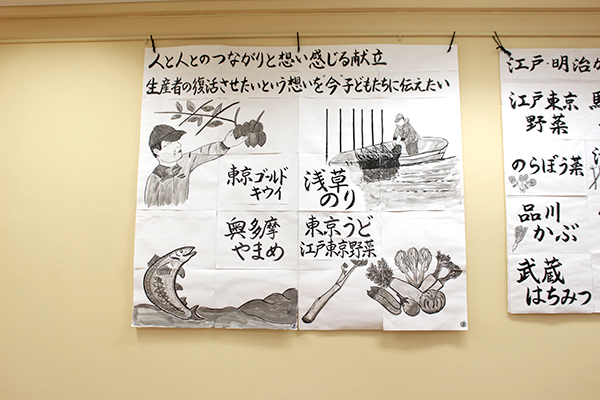 人と人とのつながりと想い感じる献立
生産者の復活させたいという想いを"今"子どもたちに伝えたい
東京ゴールド
キウイ
浅草
のり
奥多摩
やまめ
東京うど
江戸東京野菜
江戸・明治か
江戸東京
野菜
のらぼう菜
品川
かぶ
武蔵
はちみつ